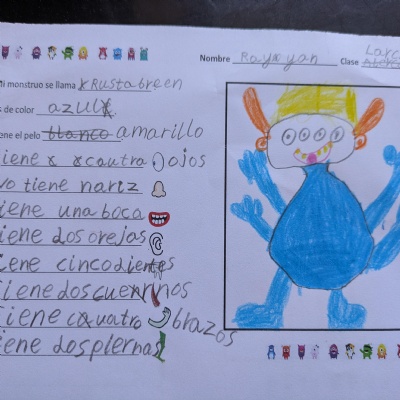 Nombre Rayxyan Clase
Mi monstruo se llama KRustabreen
s de color azul
ene el pelo blanco amarillo
iene cautro ojos
vo tiene nariz
iene una boca
iene dos orejas
iene cinco dientes
iene dos cuernos
iene cuatro brazos
iene dos piernas